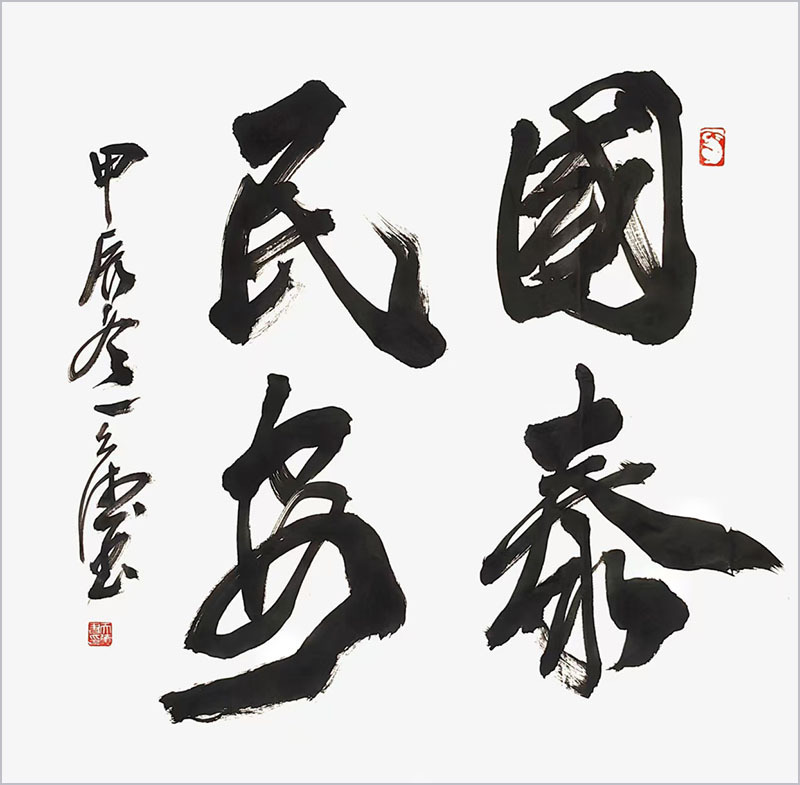 國泰
民安
甲辰冬一